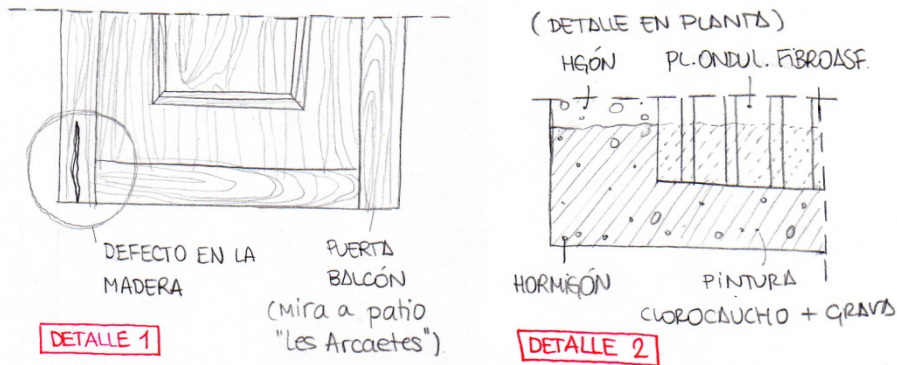 DEFECTO EN LA
MADERA
PUERTA
BALCÓN
(Mira a patio
"Les Arcaetes")
DETALLE 1
(DETALLE EN PLANTA)
HGÓN
PL.ONDUL. FIBROASF.
HORMIGÓN
PINTURA
CLOROCAUCHO + GRAVA
DETALLE 2